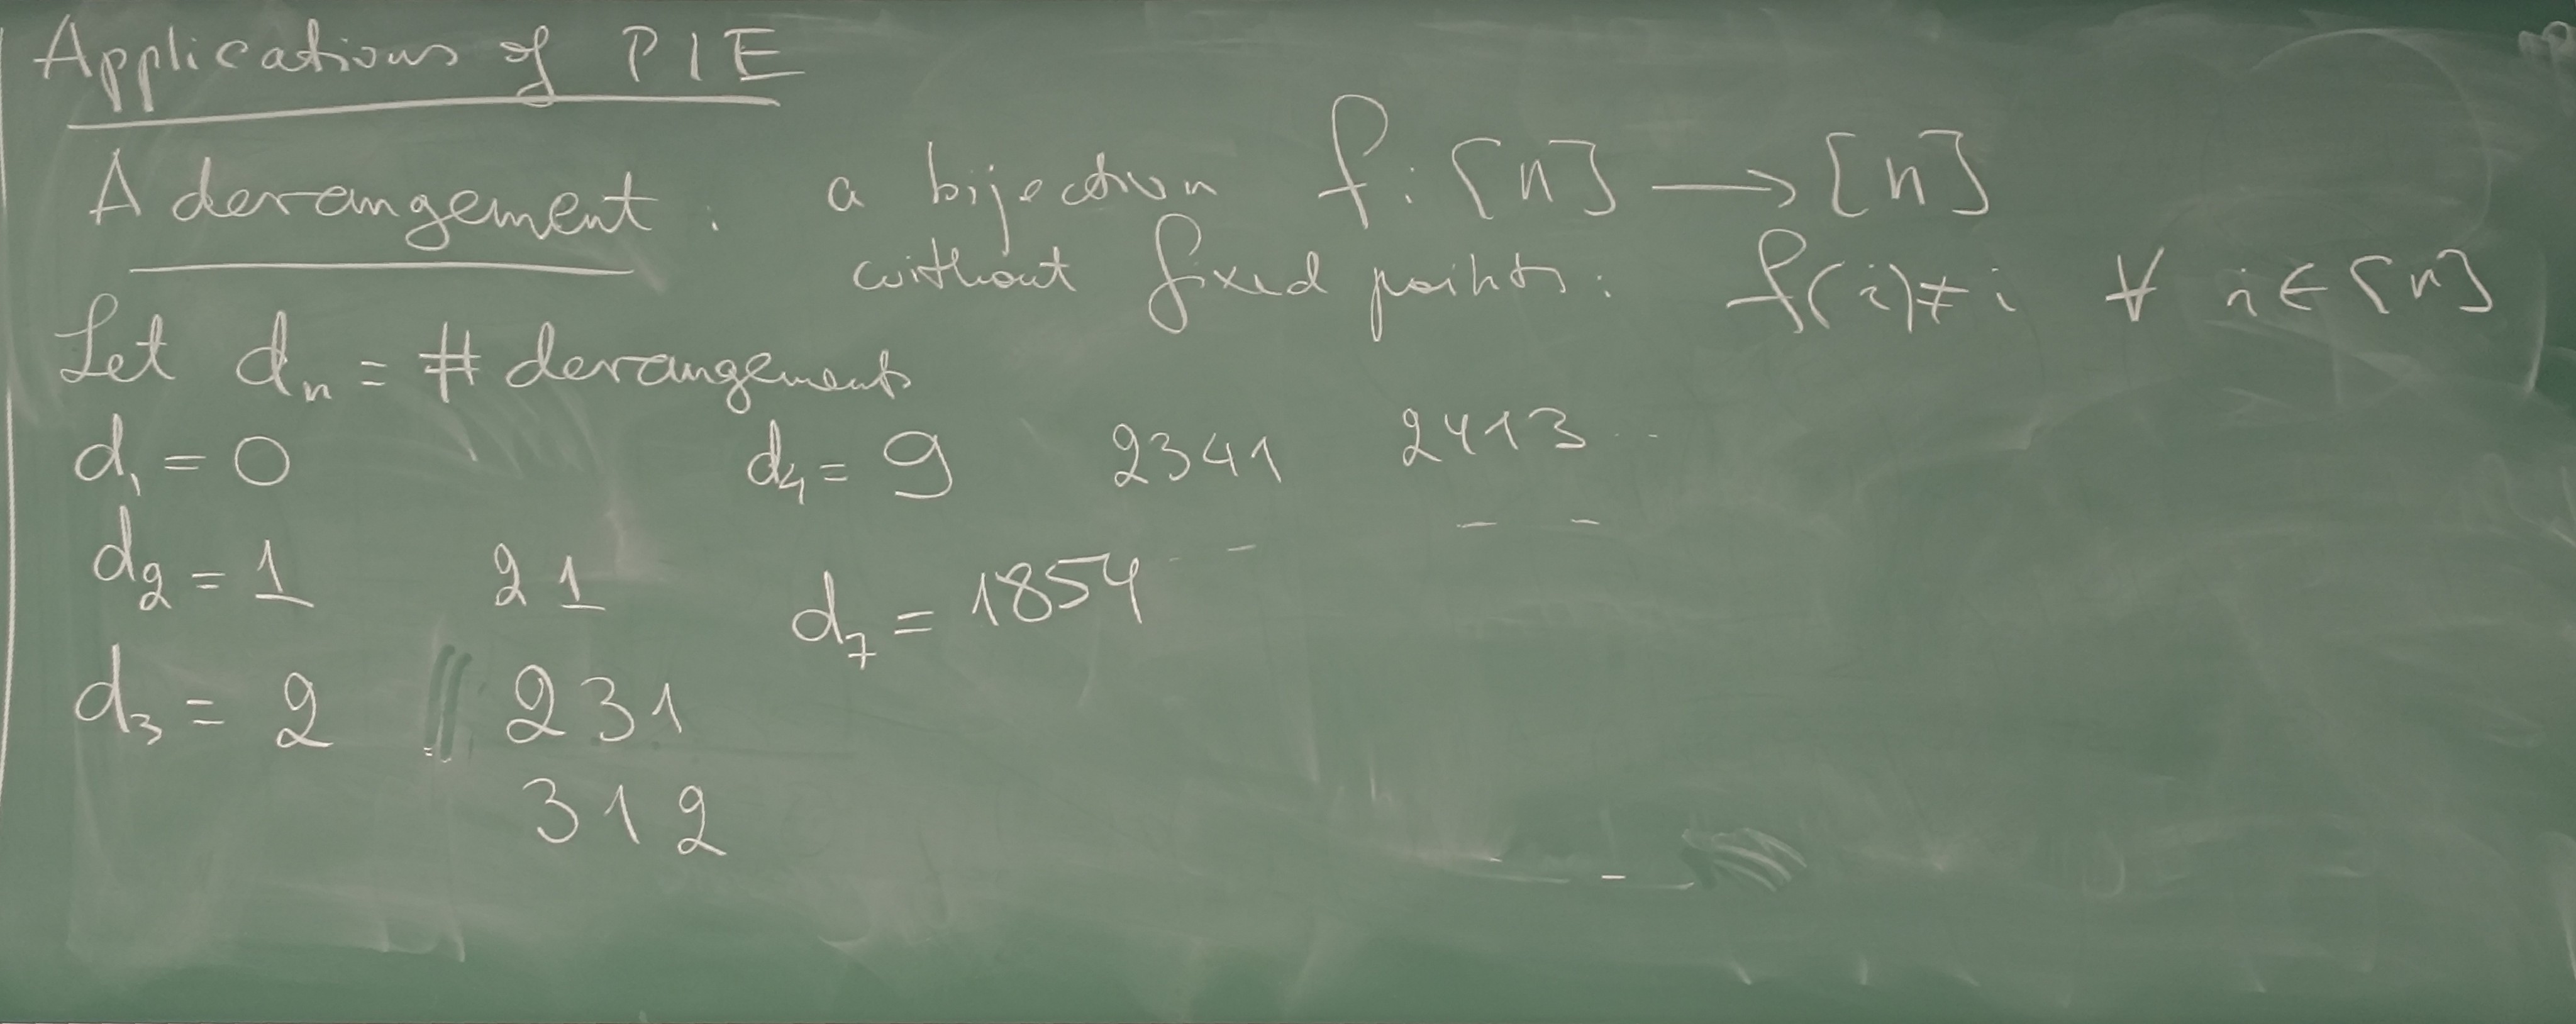 Applications of PIE
A derangement : a bijection f : [n] ⟶ [n]
without fixed points : f(i) ≠ i ∀ i ∈ [n]
Let dₙ = # derangements
d₁ = 0 d₄ = 9 2341 2413 ..
d₂ = 1 21 d₇ = 1854
d₃ = 2 231
312